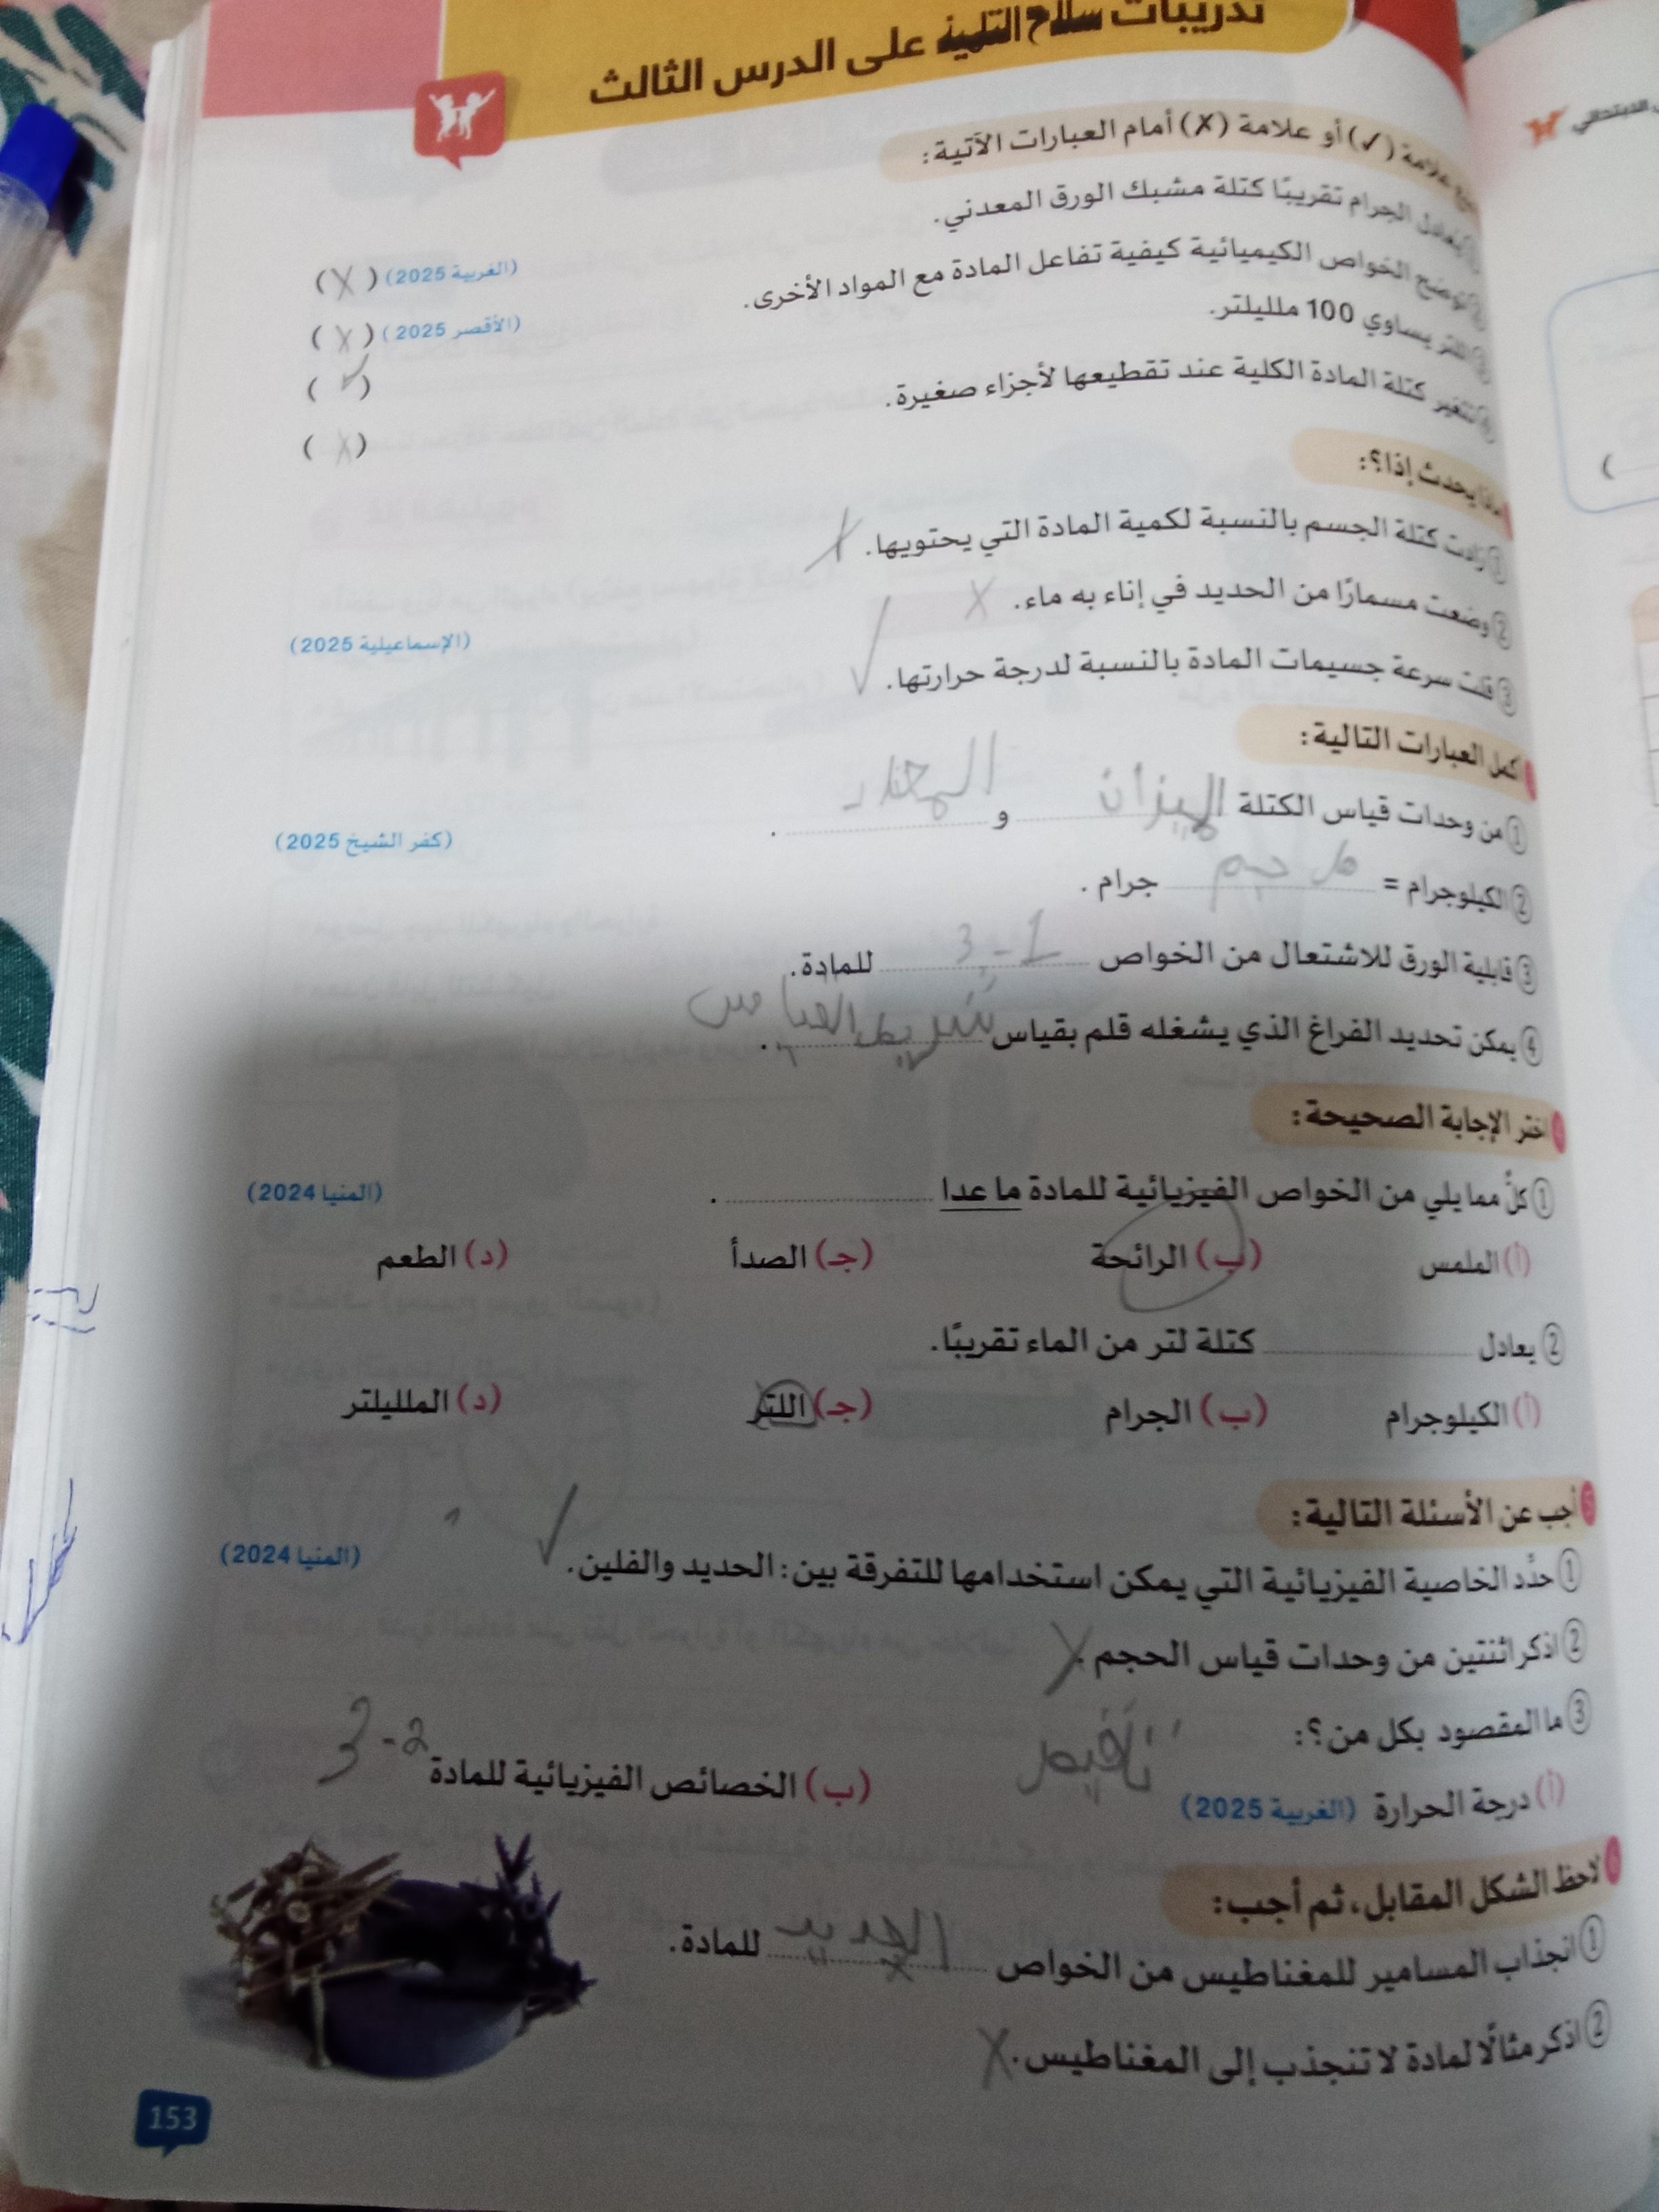 تدريبات سلاح التلميذ على الدرس الثالث
الابتدائي
علامة (✓) أو علامة (✗) أمام العبارات الآتية:
① يعادل الجرام تقريبًا كتلة مشبك الورق المعدني. (الغربية 2025) (X)
② توضح الخواص الكيميائية كيفية تفاعل المادة مع المواد الأخرى. (الأقصر 2025) (X)
③ اللتر يساوي 100 ملليلتر. (✓)
④ تتغير كتلة المادة الكلية عند تقطيعها لأجزاء صغيرة. (X)
ماذا يحدث إذا؟:
① زادت كتلة الجسم بالنسبة لكمية المادة التي يحتويها. X
② وضعت مسمارًا من الحديد في إناء به ماء. X (الإسماعيلية 2025)
③ قلت سرعة جسيمات المادة بالنسبة لدرجة حرارتها. ✓
أكمل العبارات التالية:
① من وحدات قياس الكتلة الميزان و . (كفر الشيخ 2025)
② الكيلوجرام = جرام .
③ قابلية الورق للاشتعال من الخواص 1-3 للمادة.
④ يمكن تحديد الفراغ الذي يشغله قلم بقياس شريط القياس .
اختر الإجابة الصحيحة:
① كلٌّ مما يلي من الخواص الفيزيائية للمادة ما عدا . (المنيا 2024)
(أ) الملمس (ب) الرائحة (جـ) الصدأ (د) الطعم
② يعادل كتلة لتر من الماء تقريبًا.
(أ) الكيلوجرام (ب) الجرام (جـ) اللتر (د) الملليلتر
أجب عن الأسئلة التالية:
① حدِّد الخاصية الفيزيائية التي يمكن استخدامها للتفرقة بين: الحديد والفلين. ✓ (المنيا 2024)
② اذكر اثنتين من وحدات قياس الحجم. X
③ ما المقصود بكل من؟:
(أ) درجة الحرارة (الغربية 2025) (ب) الخصائص الفيزيائية للمادة 2-3
لاحظ الشكل المقابل، ثم أجب:
① انجذاب المسامير للمغناطيس من الخواص الحديد للمادة.
② اذكر مثالًا لمادة لا تنجذب إلى المغناطيس. X
153